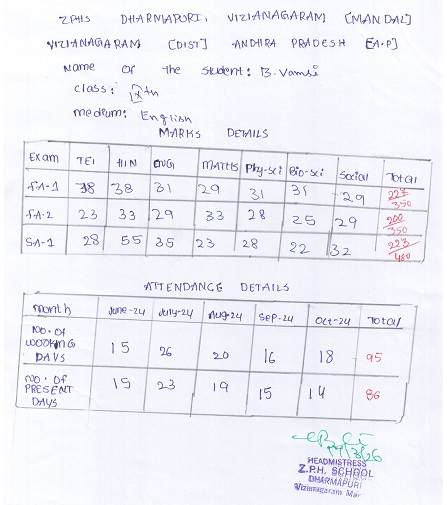 ZPHS DHARMAPURI, VIZIANAGARAM [MANDAL]
VIZIANAGARAM [DIST] ANDHRA PRADESH [A.P]
Name of the student: B. Vamsi
class: Xth
medium: English
MARKS DETAILS
Exam TEL HIN ENG MATHS Phy-sci Bio-sci Social Total
FA-1 38 38 31 29 31 31 29 227/350
FA-2 23 33 29 33 28 25 29 200/350
SA-1 28 55 35 23 28 22 32 223/480
ATTENDANCE DETAILS
month June-24 July-24 Aug-24 Sep-24 Oct-24 Total
NO. OF WOOKING DAYS 15 26 20 16 18 95
NO. OF PRESENT DAYS 15 23 19 15 14 86
HEADMISTRESS
Z.P.H. SCHOOL
DHARMAPURI
Vizianagaram